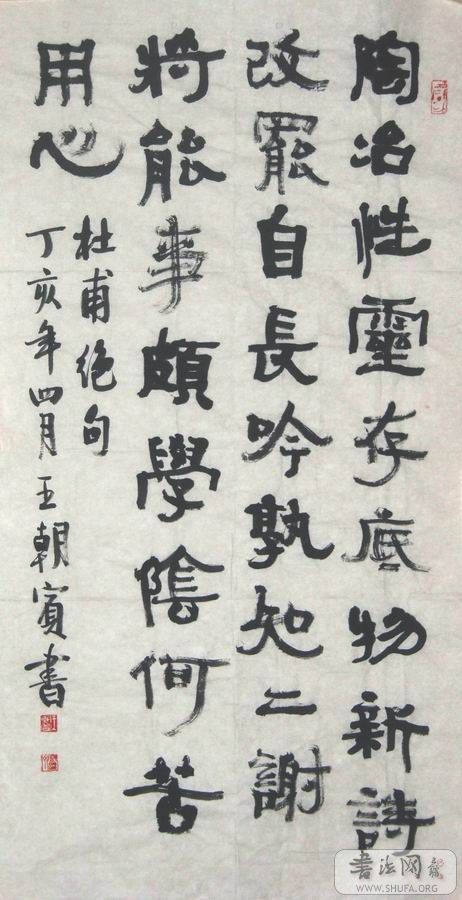 陶冶性靈存底物新詩
改罷自長吟孰知二謝
將能事頗學陰何苦
用心
杜甫絕句
丁亥年四月王朝賓書
書法网
WWW.SHUFA.ORG